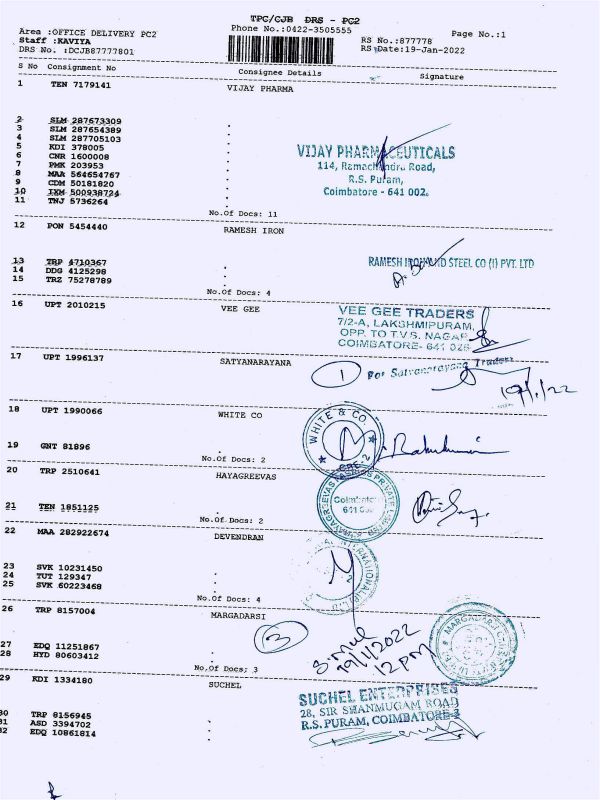 TPC/CJB DRS - PC2
Area :OFFICE DELIVERY PC2
Phone No.:0422-3505555
Staff :KAVIYA
RS No.:877778
Page No.:1
DRS No. :DCJB87777801
RS Date:19-Jan-2022
S No Consignment No Consignee Details Signature
1 TEN 7179141 VIJAY PHARMA
2 SLM 287673309
3 SLM 287654389
4 SLM 287705103
5 KDI 378005
6 CNR 1600008
7 PMK 203953
8 MAA 564654767
9 CDM 50181820
10 IXM 500938724
11 TNJ 5736264
VIJAY PHARMACEUTICALS
114, Ramachandra Road,
R.S. Puram,
Coimbatore - 641 002.
No.Of Docs: 11
12 PON 5454440 RAMESH IRON
13 TRP 4710367
14 DDG 4125298
15 TRZ 75278789
RAMESH IRON AND STEEL CO (I) PVT. LTD
No.Of Docs: 4
16 UPT 2010215 VEE GEE
VEE GEE TRADERS
7/2-A, LAKSHMIPURAM,
OPP. TO T.V.S. NAGAR,
COIMBATORE- 641 025
17 UPT 1996137 SATYANARAYANA
1 For Satyanarayana Traders
19/1/22
18 UPT 1990066 WHITE CO
WHITE & CO.
19 GNT 81896
No.Of Docs: 2
20 TRP 2510641 HAYAGREEVAS
Coimbatore
21 TEN 1851125
No.Of Docs: 2
22 MAA 282922674 DEVENDRAN
23 SVK 10231450
24 TUT 129347
25 SVK 60223468
No.Of Docs: 4
26 TRP 8157004 MARGADARSI
3
19/1/2022
12 PM
27 EDQ 11251867
28 HYD 80603412
No.Of Docs: 3
29 KDI 1334180 SUCHEL
SUCHEL ENTERPRISES
28, SIR SHANMUGAM ROAD
R.S. PURAM, COIMBATORE-2
30 TRP 8156945
31 ASD 3394702
32 EDQ 10861814